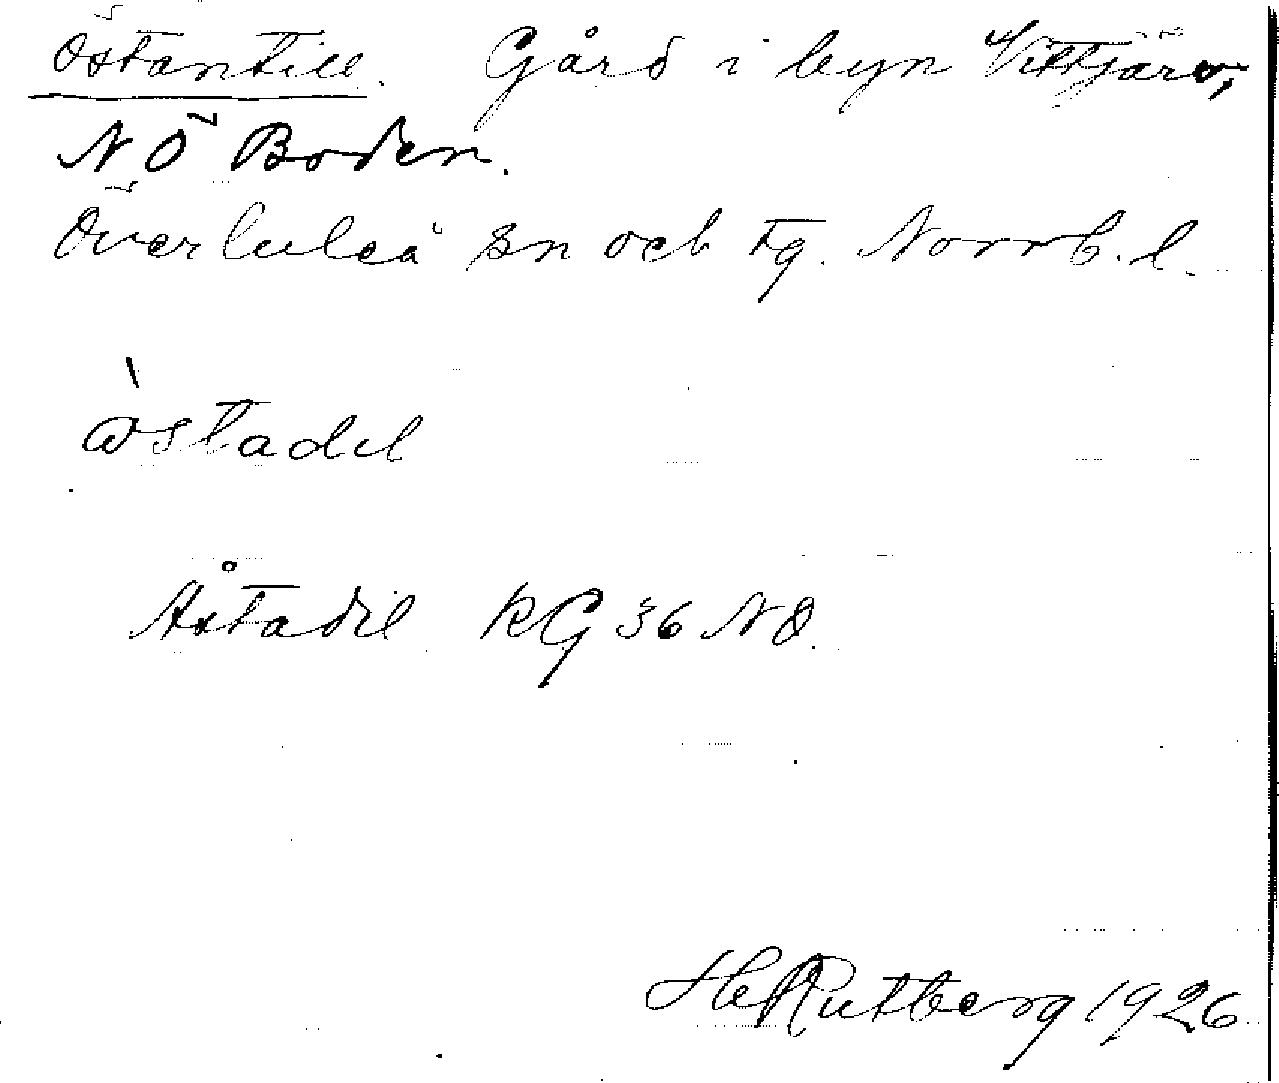 Östantill. Gård i byn Vittjärv,
NÖ Boden.
Överluleå sn och tg. Norrb. l.
òstadel
Åstadil KG 36 NO.
He Rutberg 1926